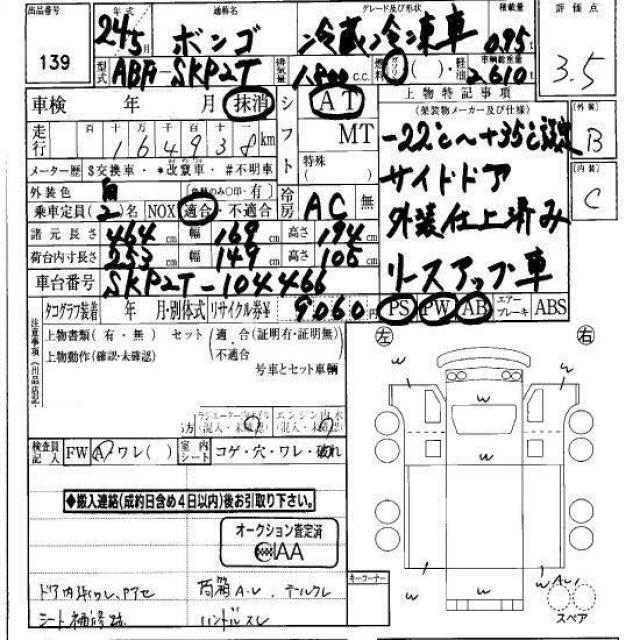 出品番号 139
年式 24年5月
通称名 ボンゴ
グレード及び形状 冷蔵冷凍車
積載量 0.95t
評価点 3.5
型式 ABF-SKP2T
排気量 1,800 c.c.
燃料 ガソリン ( )・軽油
車輌総重量 2,610 t
車検 年 月 抹消
シフト AT
MT
特殊 ( )
走行 百 十 万 千 百 十
164938 km
メーター歴 $交換車・*改竄車・#不明車
上物特記事項
(架装物メーカー及び仕様)
-22℃~+35℃設定
サイドドア
外装仕上済み
リースアップ車
(外装) B
(内装) C
外装色 白
有)
冷房 AC 無
乗車定員(2)名 NOX 適合 不適合
諸元長さ 464cm 幅 169cm 高さ 194cm
荷台内寸長さ 253cm 幅 149cm 高さ 105cm
車台番号 SKP2T-104466
タコグラフ装着 年 月・別体式 リサイクル券¥ 9060円
PS PW AB エアーブレーキ ABS
注意事項(出品店記入)
上物書類(有・無) セット(適合(証明有・証明無)
上物動作(確認・未確認) 不適合
号車とセット車輌
左 右
ラジエーター内オイル エンジン内水
(混入・未確認) (混入・未確認)
検査員記入 FW A/ワレ( ) 室内シート コゲ・穴・ワレ・破れ
◆搬入連絡(成約日含め4日以内)後お引取り下さい。
オークション査定済
CIAA
キーコーナー
シート補修跡 ハンドルスレ
w
w
w
w
w
w
w
スペア